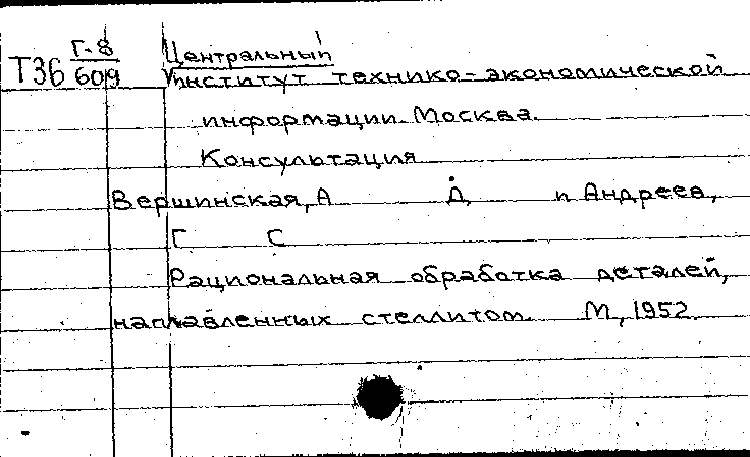 Г-8 Центральный
Т36 609 институт технико-экономической
информации. Москва.
Консультация
Вершинская, А Д, и Андреев,
Г С
Рациональная обработка деталей,
наплавленных стеллитом. М, 1952.